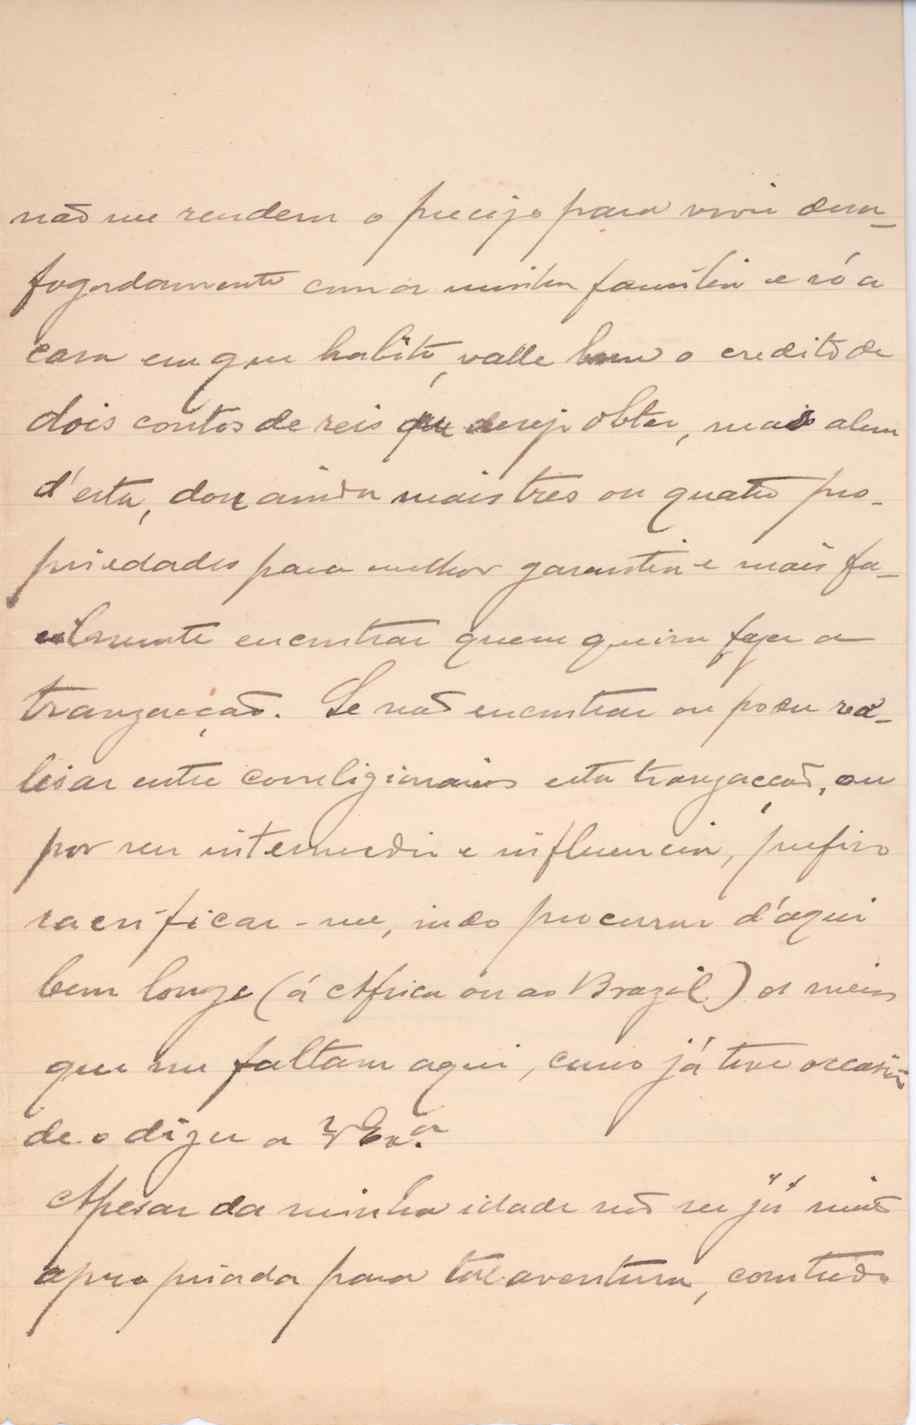 não me rendem o precizo para viver desa-
fogadamente com a minha familia e só a
casa em que habito, valle bem o credito de
dois contos de reis que desejo obter, mas alem
d'esta, dou ainda mais tres ou quatro pro-
priedades para melhor garantia e mais fa-
cilmente encontrar quem queira fazer a
tranzacção. Se não encontrar ou poder rea-
lisar entre correligionarios esta tranzacção, ou
por seu intermedio e influencia, prefiro
sacrificar-me, indo procurar d'aqui
bem longe (á Africa ou ao Brazil) os meios
que me faltam aqui, como já tive occasião
de o dizer a V Exª.
Apesar da minha idade não ser já muito
apropriada para tal aventura, comtudo